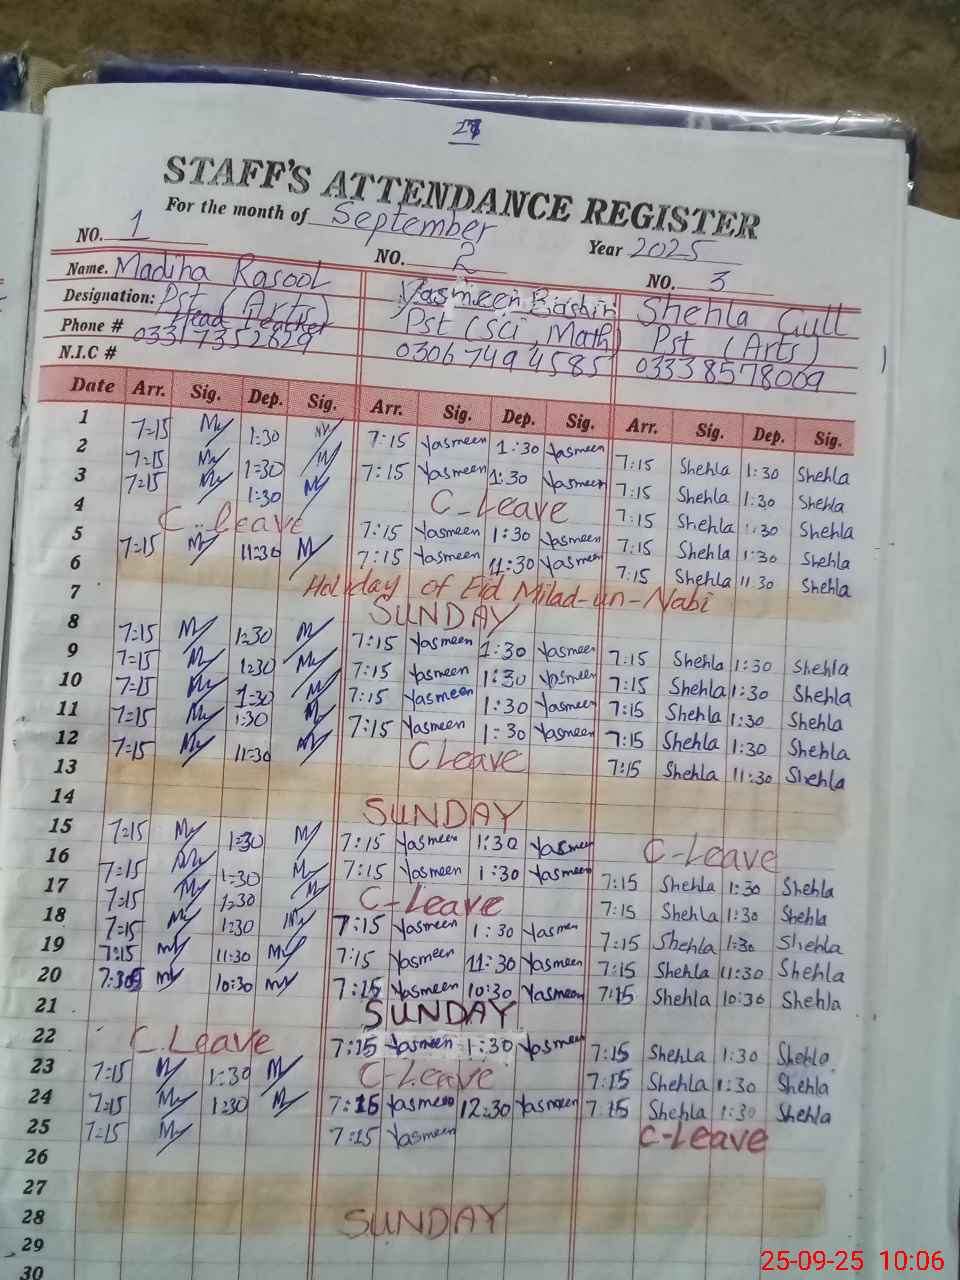 27
STAFF'S ATTENDANCE REGISTER
For the month of September
Year 2025
NO. 1 NO. 2 NO. 3
Name. Madiha Rasool Yasmeen Bashir Shehla Gull
Designation: Pst (Arts) Head Teacher Pst (Sci, Math) Pst (Arts)
Phone # 03317352629 0306 749 4585 0333 8578009
N.I.C #
Date Arr. Sig. Dep. Sig. Arr. Sig. Dep. Sig. Arr. Sig. Dep. Sig.
1 7=15 1:30 7:15 Yasmeen 1:30 Yasmeen 7:15 Shehla 1:30 Shehla
2 7=15 1=30 7:15 Yasmeen 1:30 Yasmeen 7:15 Shehla 1:30 Shehla
3 7=15 1:30 C-Leave 7:15 Shehla 1:30 Shehla
4 C-Leave 7:15 Yasmeen 1:30 Yasmeen 7:15 Shehla 1:30 Shehla
5 7=15 11=30 7:15 Yasmeen 11:30 Yasmeen 7:15 Shehla 11:30 Shehla
6 Holiday of Eid Milad-un-Nabi
7 SUNDAY
8 7=15 1:30 7:15 Yasmeen 1:30 Yasmeen 7:15 Shehla 1:30 Shehla
9 7=15 1:30 7:15 Yasmeen 1:30 Yasmeen 7:15 Shehla 1:30 Shehla
10 7=15 1=30 7:15 Yasmeen 1:30 Yasmeen 7:15 Shehla 1:30 Shehla
11 7=15 1:30 7:15 Yasmeen 1:30 Yasmeen 7:15 Shehla 1:30 Shehla
12 7=15 11=30 C Leave 7:15 Shehla 11:30 Shehla
13
14 SUNDAY
15 7=15 1=30 7:15 Yasmeen 1:30 Yasmeen C-Leave
16 7=15 1=30 7:15 Yasmeen 1:30 Yasmeen 7:15 Shehla 1:30 Shehla
17 7=15 1:30 C-Leave 7:15 Shehla 1:30 Shehla
18 7=15 1:30 7:15 Yasmeen 1:30 Yasmen 7:15 Shehla 1:30 Shehla
19 7:15 11:30 7:15 Yasmeen 11:30 Yasmeen 7:15 Shehla 11:30 Shehla
20 10:30 7:15 Yasmeen 10:30 Yasmeen 7:15 Shehla 10:30 Shehla
21 SUNDAY
22 C.Leave 7:15 Yasmeen 1:30 Yasmeen 7:15 Shehla 1:30 Shehla
23 7=15 1:30 C-Leave 7:15 Shehla 1:30 Shehla
24 7=15 1:30 7:15 Yasmeen 12:30 Yasmeen 7:15 Shehla 1:30 Shehla
25 7=15 7:15 Yasmeen C-Leave
26
27
28 SUNDAY
29
30
25-09-25 10:06